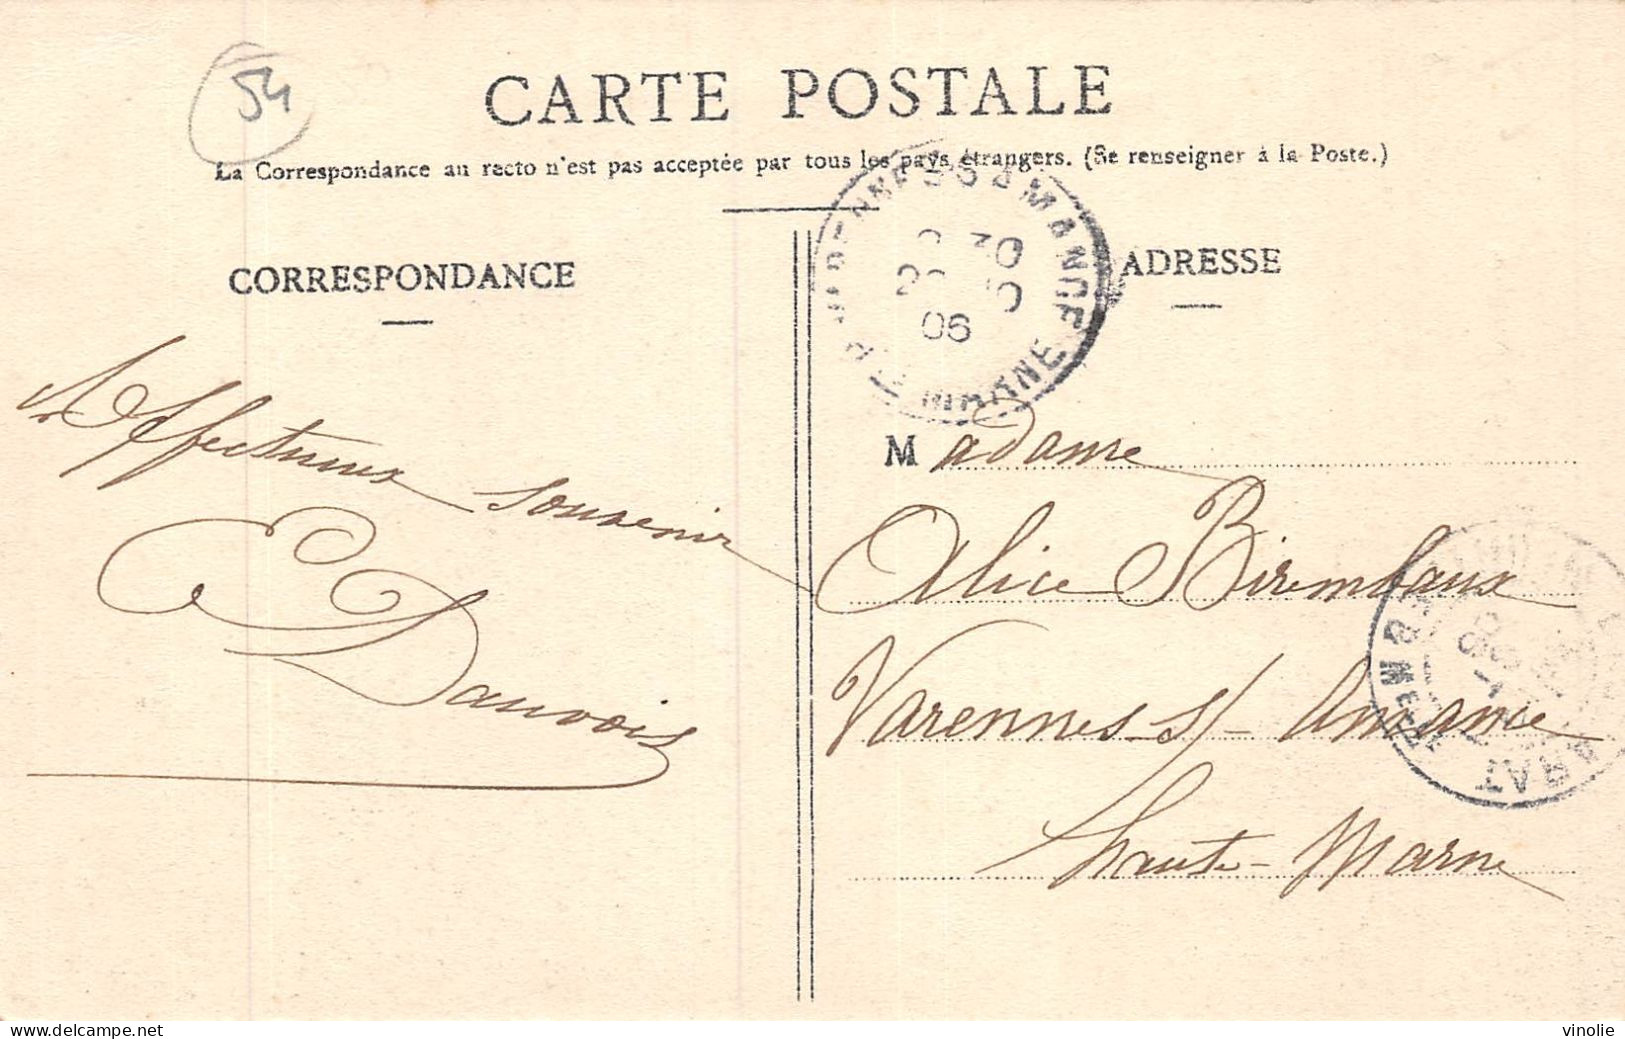 54
CARTE POSTALE
La Correspondance au recto n'est pas acceptée par tous les pays étrangers. (Se renseigner à la Poste.)
CORRESPONDANCE
ADRESSE
VARENNES S. AMANCE
30
06
HTE MARNE
Affectueux souvenir
E Dauvois
Madame
Alice Birembaux
Varennes-s/-Amance
haute-Marne
delcampe.net
vinolie